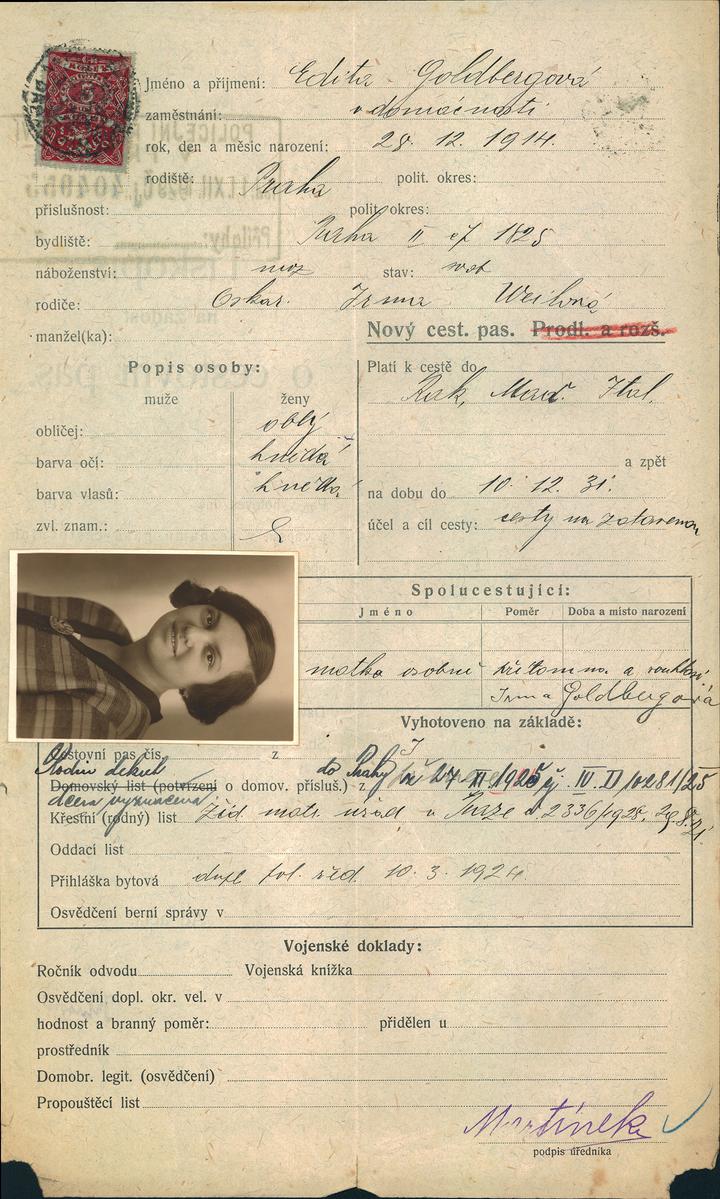 Jméno a příjmení: Edita Goldbergová
zaměstnání: v domácnosti
rok, den a měsíc narození: 28. 12. 1914.
rodiště: Praha polit. okres:
příslušnost: polit. okres:
bydliště: Praha II čp 1825
náboženství: moz stav: svob
rodiče: Oskar. Irma Weilová
manžel(ka): Nový cest. pas. Prodl. a rozš.
Popis osoby:
muže ženy
obličej: oblý
barva očí: hnědá
barva vlasů: hnědá
zvl. znam.:
Platí k cestě do
Rak, Maď. Ital.
a zpět
na dobu do 10. 12. 31.
účel a cíl cesty: cesty na zotavenou
Spolucestující:
Jméno Poměr Doba a místo narození
matka osobně přítomna a souhlasí.
Irma Goldbergová
Vyhotoveno na základě:
Cestovní pas čís. z
do Prahy
Domovský list (potvrzení o domov. přísluš.) z 27 XI 1925 č. IV. D 10281/25
dcera vyznačena
Křestní (rodný) list Žid. matr. úřad v Praze č. 2336/1928,
Oddací list
Přihláška bytová dupl pol. řed. 10. 3. 1924
Osvědčení berní správy v
Vojenské doklady:
Ročník odvodu Vojenská knížka
Osvědčení dopl. okr. vel. v
hodnost a branný poměr: přidělen u
prostředník
Domobr. legit. (osvědčení)
Propouštěcí list
Martínek
podpis úředníka